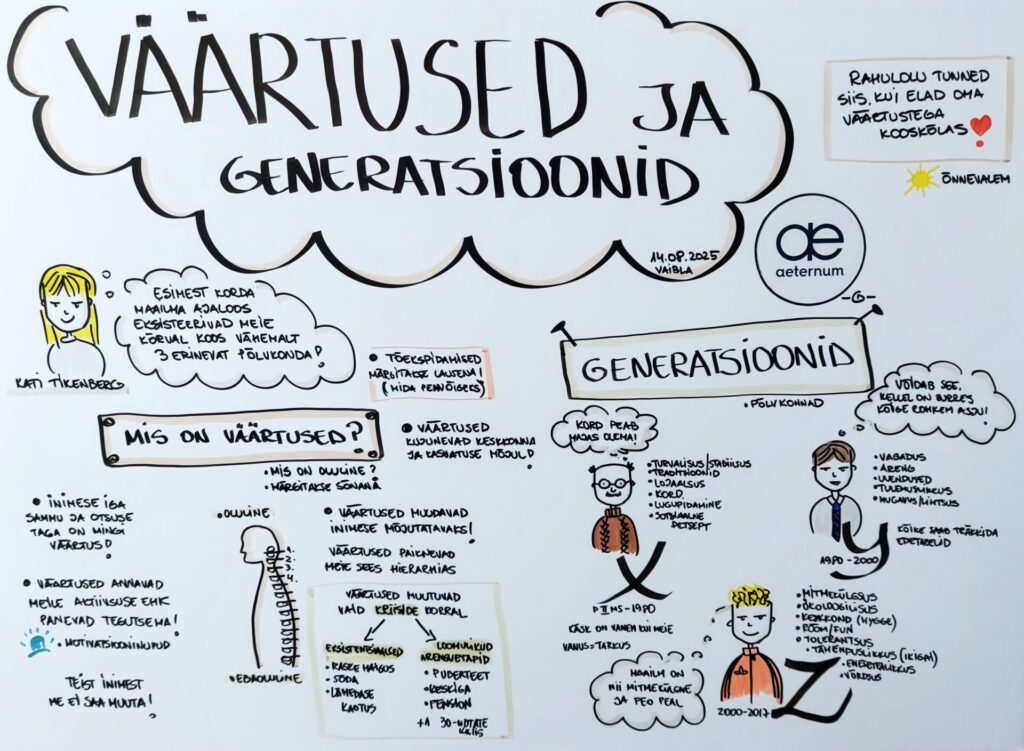 VÄÄRTUSED JA
GENERATSIOONID
14.08.2025
VAIBLA
RAHULOLU TUNNED
SIIS, KUI ELAD OMA
VÄÄRTUSTEGA
KOOSKÕLAS!
ÕNNEVALEM
ae
aeternum
KATI TIKENBERG
ESIMEST KORDA
MAAILMA AJALOOS
EKSISTEERIVAD MEIE
KÕRVAL KOOS VÄHEMALT
3 ERINEVAT PÕLVKONDA!
• TÕEKSPIDAMISED
MÄRGITAKSE LAUSENA!
MIS ON VÄÄRTUSED?
• MIS ON OLULINE?
• MÄRGITAKSE SÕNANA
• VÄÄRTUSED
KUJUNEVAD KESKKONNA
JA KASVATUSE MÕJUL!
• INIMESE IGA
SAMMU JA OTSUSE
TAGA ON MINGI
VÄÄRTUS!
• VÄÄRTUSED ANNAVAD
MEILE AKTIIVSUSE EHK
PANEVAD TEGUTSEMA!
TEIST INIMEST
ME EI SAA MUUTA!
• OLULINE
1.
2.
3.
4.
• EBAOLULINE
• VÄÄRTUSED MUUDAVAD
INIMESE MÕJUTATAVAKS!
VÄÄRTUSED PAIKNEVAD
MEIE SEES HIERARHIAS
VÄÄRTUSED MUUTUVAD
VAID KRIISIDE KORRAL
EKSISTENTSIAALSED
• RASKE HAIGUS
• SÕDA
• LÄHEDASE
KAOTUS
LOOMULIKUD
ARENGUETAPID
• PUBERTEET
• KESKIGA
• PENSION
+A 30-NDTATE
KRIIS
GENERATSIOONID
• PÕLVKONNAD
KORD PEAB
MAJAS OLEMA!
• TURVALISUS/STABIILSUS
• TRADITSIOONID
• LOJAALSUS
• KORD
• LUGUPIDAMINE
• SOTSIAALNE
RETSEPT
X
P II MS - 1980
KÄSK ON VANEM KUI MEIE
VANUS = TARKUS
VÕIDAB SEE,
KELLEL ON SURRES
KÕIGE ROHKEM ASJU!
• VABADUS
• ARENG
• UUENDUSED
• TULEMUSLIKKUS
• MUGAVUS/LIHTSUS
KÕIKE SAAB TRÄKKIDA
EDETABELID
Y
1980 - 2000
• MITMEKÜLGSUS
• ÖKOLOOGILISUS
• KESKKOND (HYGGE)
• RÕÕM/FUN
• TOLERANTSUS
• TÄHENDUSLIKKUS (IKIGAI)
• ENERGEETILIKKUS
• VÕRDSUS
MAAILM ON
NII MITMEKÜLGNE
JA PEO PEAL
Z
2000-2017